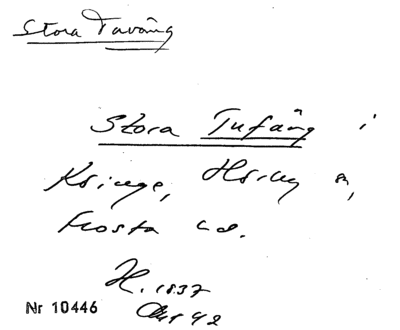 Stora Tuvång
Stora Tufång i
Köinge, Hörby sn,
Frosta hd.
1837
Akt 42
Nr 10446